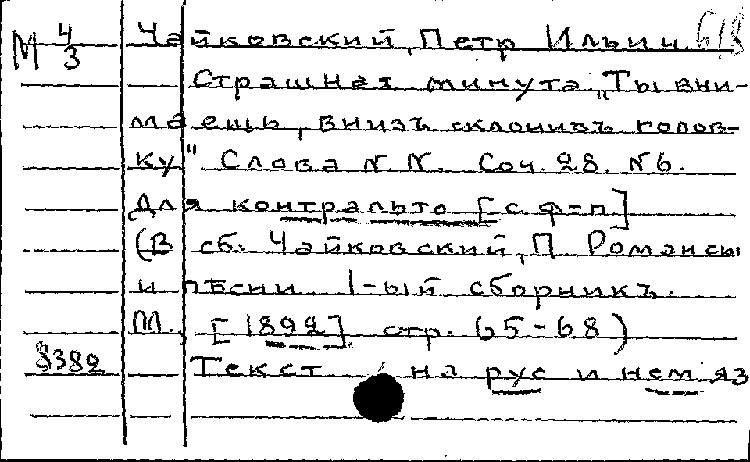 М 4/3 Чайковский, Петр Ильич 618
Страшная минута „Ты вни-
маешь, внизъ склонивъ голов-
ку" Слова N. N. Соч. 28. N 6.
Для контральто [с ф-п]
(В сб. Чайковский, П Романсы
и пѣсни 1-ый сборникъ.
М. [1892] стр. 65-68)
8382 Текст на рус и нем яз